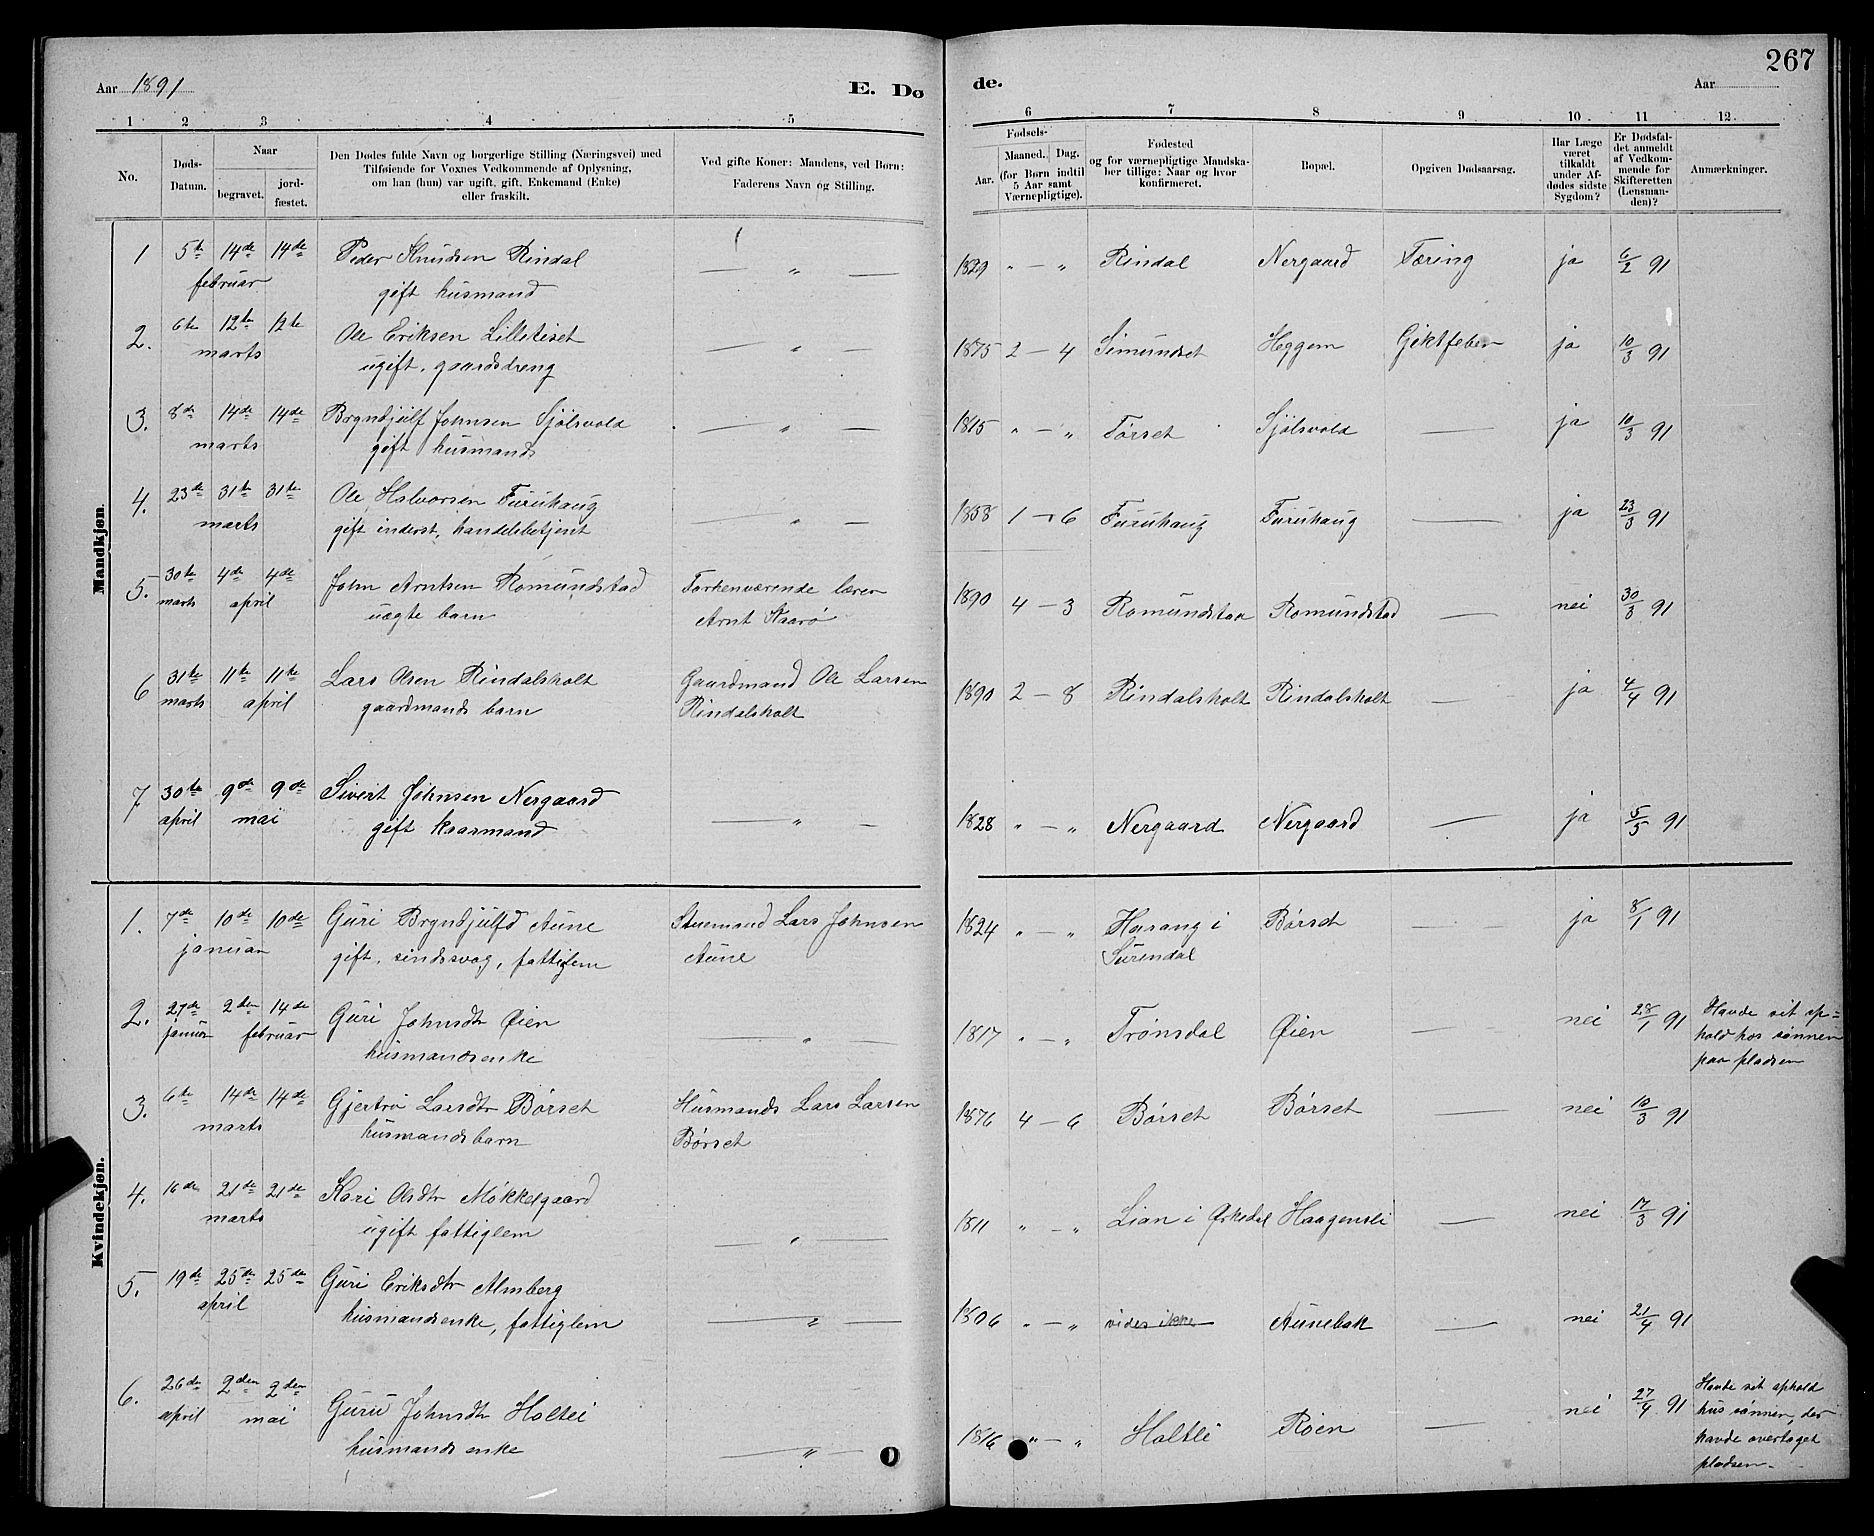 267
Aar 1891
E. Dø
de.
Aar
1 2 3 4 5
6 7 8 9 10 11 12
No.
Døds-
Datum.
Naar
begravet.
jord-
fæstet.
Den Dødes fulde Navn og borgerlige Stilling (Næringsvei) med
Tilføiende for Voxnes Vedkommende af Oplysning,
om han (hun) var ugift, gift, Enkemand (Enke)
eller fraskilt.
Ved gifte Koner: Mandens, ved Børn:
Faderens Navn og Stilling.
Fødsels-
Aar.
Maaned. Dag.
(for Børn indtil
5 Aar samt
Værnepligtige).
Fødested
og for værnepligtige Mandska-
ber tillige: Naar og hvor
konfirmeret.
Bopæl.
Opgiven Dødsaarsag.
Har Læge
været
tilkaldt
under Af-
dødes sidste
Sygdom?
Er Dødsfal-
det anmeldt
af Vedkom-
mende for
Skifteretten
(Lensman-
den)?
Anmærkninger.
Mandkjøn.
1 5te 14de 14de Peder Knudsen Rindal — „ — 1829 „ — „ Rindal Nergaard Tæring ja 6/2 91
februar gift husmand
2. 6te 12te 12te Ole Eriksen Lilletiset — „ — 1875 2 — 4 Simundset Heggem Giktfeber ja 10/3 91
marts ugift, gaardsdreng
3. 8de 14de 14de Bryndjulf Johnsen Sjölsvold — „ — 1815 „ — „ Törset Sjölsvold — ja 10/3 91
marts gift husmand
4. 23de 31te 31te Ole Halvorsen Furuhaug — „ — 1858 1 — 6 Furuhaug Furuhaug — ja 23/3 91
marts gift inderst, handelsbetjent
5. 30te 4de 4de John Arntsen Romundstad Forhenværende lærer 1890 4 — 3 Romundstad Romundstad — nei 30/3 91
marts april uægte barn Arnt
6 31te 11te 11te Lars Olsen Rindalsholt Gaardmand Ole Larsen 1890 2 — 8 Rindalsholt Rindalsholt — ja 4/4 91
marts april gaardmands barn Rindalsholt
7 30te 9de 9de Sivert Johnsen Nergaard — „ — 1828 „ — „ Nergaard Nergaard — ja 5/5 91
april mai gift kaarmand
Kvindekjøn.
1. 7de 10de 10de Guri Bryndjulfd Aune Lars Johnsen 1824 „ — „ Harang i Børset — ja 8/1 91
januar gift, sindssvag, fattiglem Aune Surendal
2. 27de 2den 14de Guri Johnsdtr Øien — „ — 1817 „ — „ Trönsdal Øien — nei 28/1 91 Havde sit op-
januar februar husmandsenke hold hos sønnen
paa pladsen
3. 6te 14de 14de Gjertrø Larsdtr Børset Husmands Lars Larsen 1876 4 — 6 Børset Børset — nei 10/3 91
marts husmandsbarn Børset
4. 16de 21de 21de Kari Olsdtr Møkkelgaard — „ — 1811 „ — „ Lian i Ørkedal Haagensli — nei 17/3 91
marts ugift fattiglem
5. 19de 25de 25de Guri Eriksdtr Almberg — „ — 1806 „ — „ vides ikke Aunebak — nei 21/4 91
april husmandsenke, fattiglem
6. 26de 2den 2den Guru Johnsdtr Holtli — „ — 1816 „ — „ Holtli Røen — nei 27/4 91 Havde sit ophold
april mai husmandsenke hos sønnen, der
havde overtaget
pladsen.